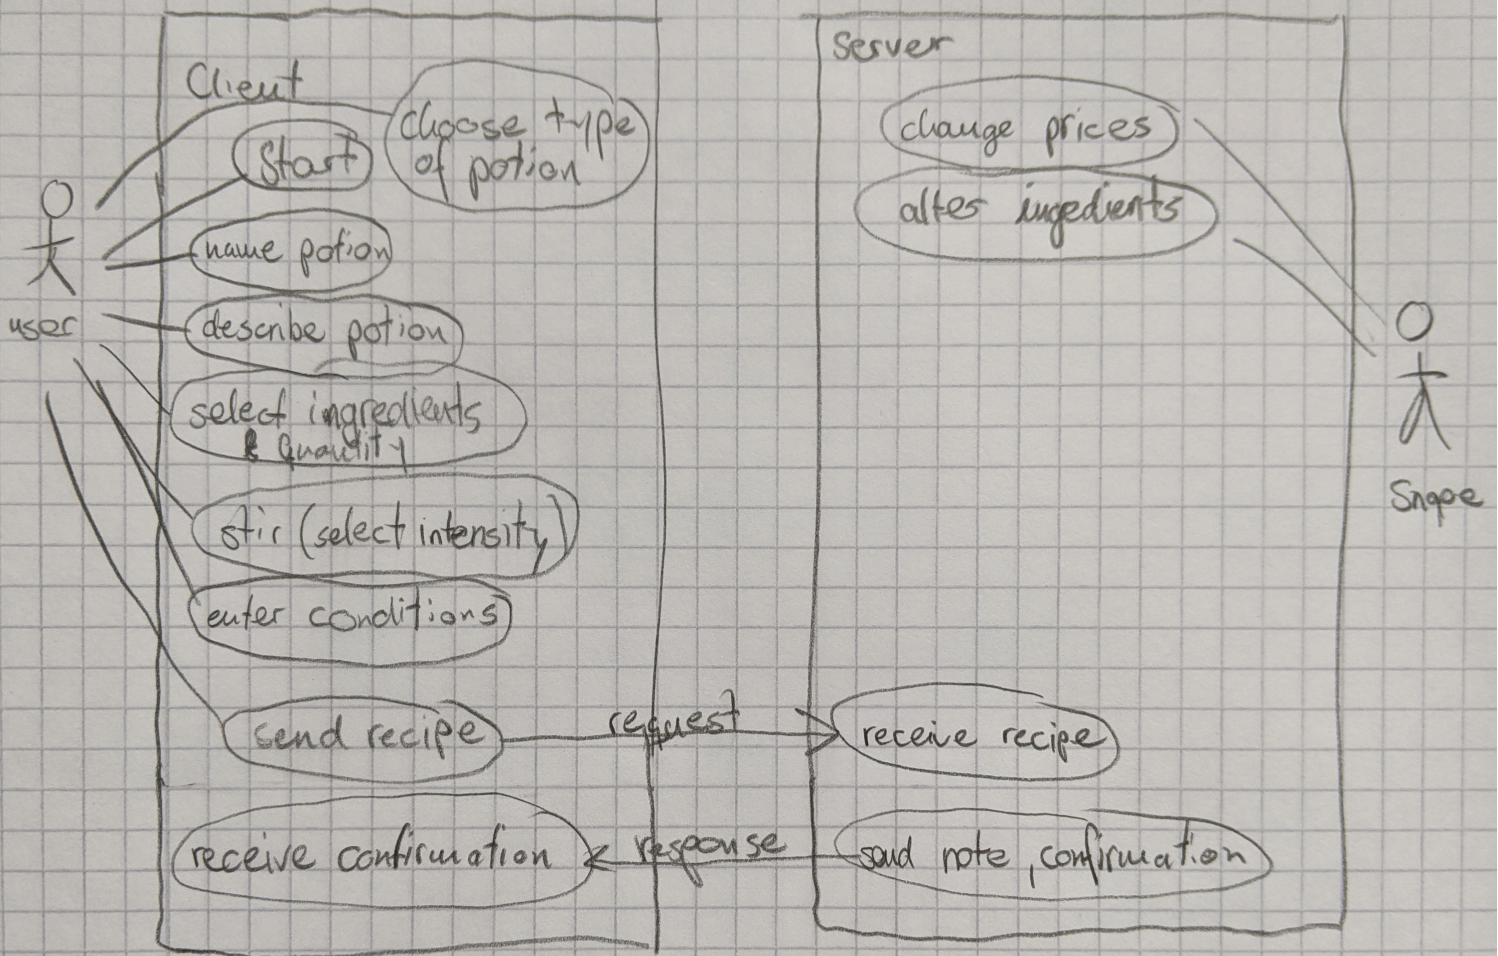 Client
choose type
of potion
Start
name potion
user
describe potion
select ingredients
& Quantity
stir (select intensity)
enter conditions
send recipe
request
receive confirmation
response
Server
change prices
alter ingedients
Snape
receive recipe
send note, confirmation